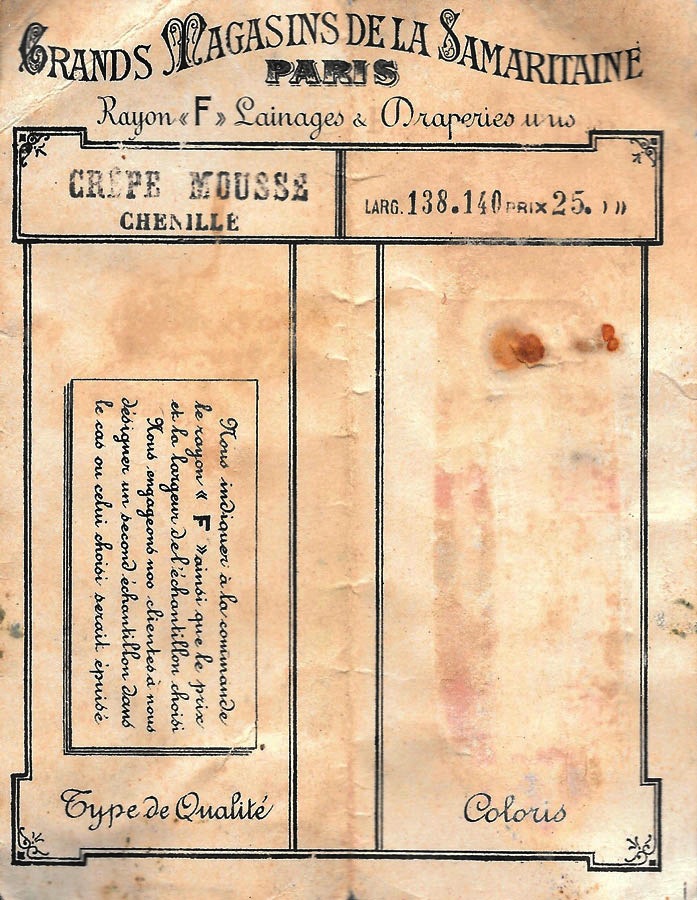 GRANDS MAGASINS DE LA SAMARITAINE
PARIS
Rayon « F » Lainages & Draperies unis
CRÊPE MOUSSE
CHENILLE
LARG. 138.140 PRIX 25. »
Nous indiquer à la commande
le rayon « F » ainsi que le prix
et la largeur de l'échantillon choisi
Nous engageons nos clientes à nous
désigner un second échantillon dans
le cas ou celui choisi serait épuisé
Type de Qualité
Coloris